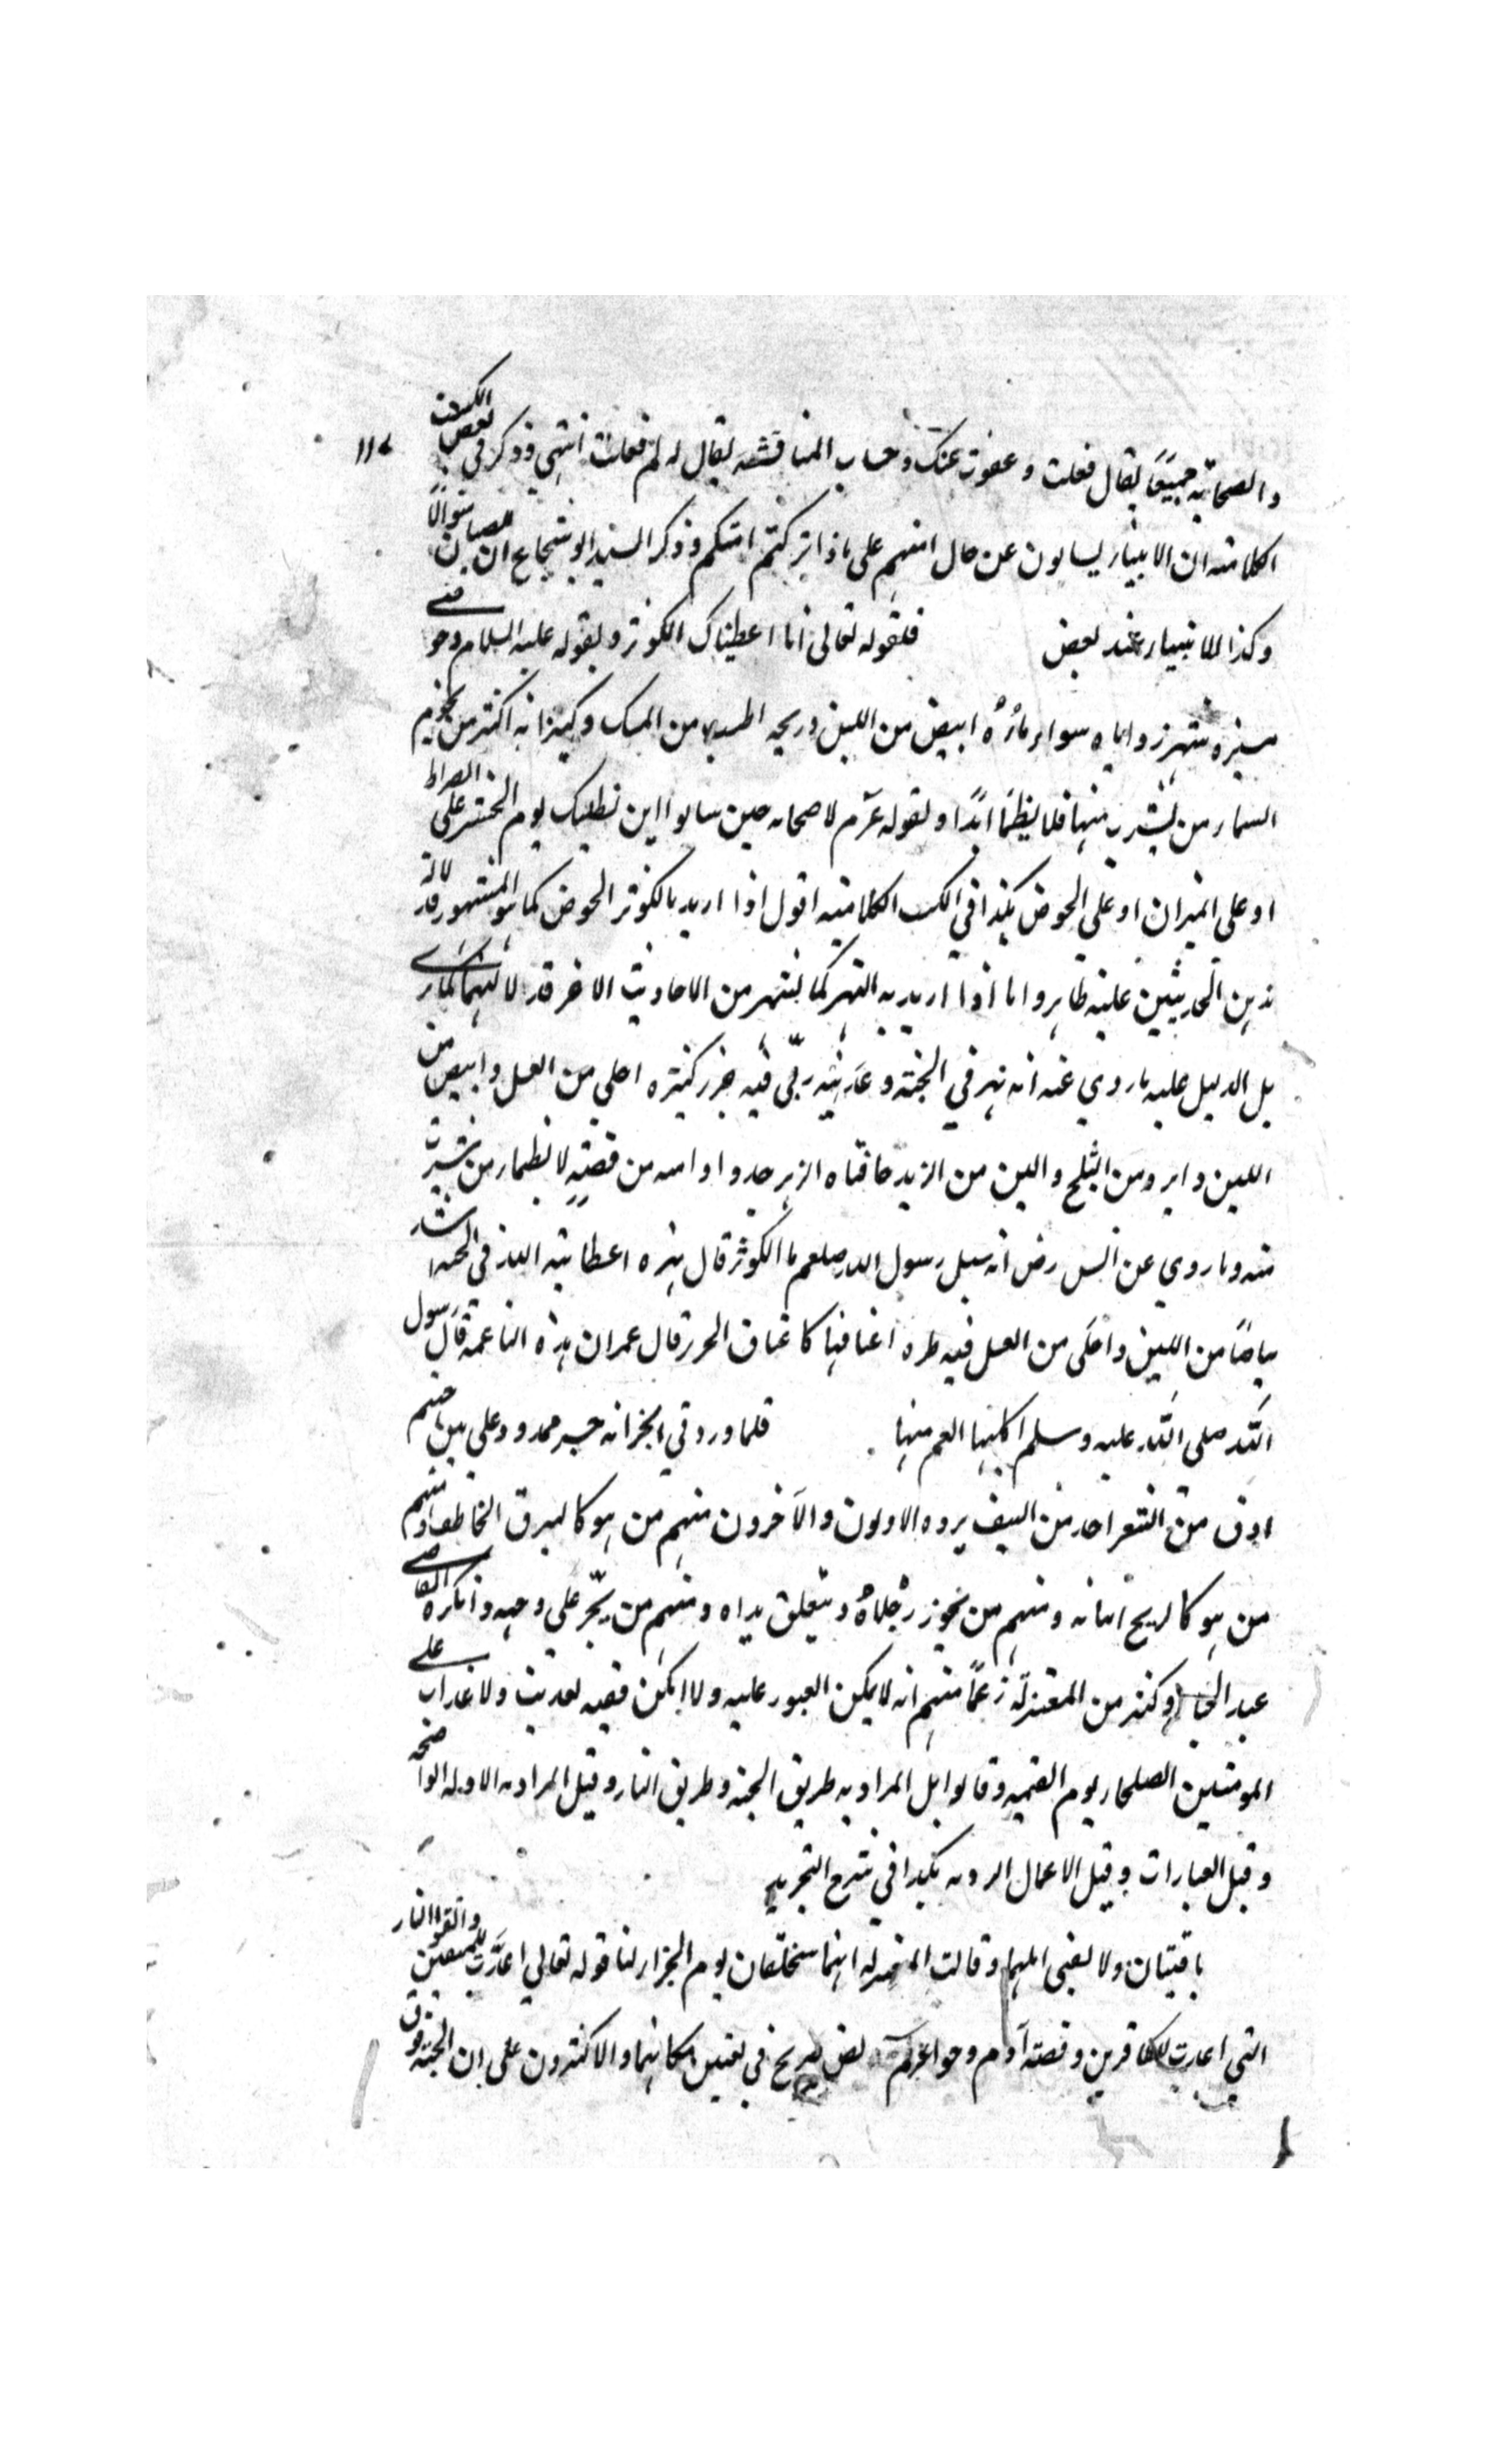 والصحابة جميعًا يقال فعلت وعفوت عنك وحساب المناقشة يقال له لم فعلت انتهي وذكر في بعض الكتب ١١٤
الكلامية ان الانبياء يسالون عن حال امتهم على ماذا تركتم امتكم وذكر السيد ابو شجاع ان للصبيان سوالًا
وكذا للانبياء عند بعض فلقوله تعالى انا اعطيناك الكوثر ولقوله عليه السلام حوضي
مسيرة شهر زواياه سواء ماؤه ابيض من اللبن وريحه اطيب من المسك وكيزانه اكثر من نجوم
السماء من يشرب منها فلا يظمأ ابدًا ولقوله عم لاصحابه حين سالوا اين نطلبك يوم الحشر على الصراط
او على الميزان او على الحوض هكذا في الكتب الكلامية اقول اذا اريد بالكوثر الحوض كما هو المشهور فدلالة
ذين الحديثين عليه ظاهر واما اذا اريد به النهر كما يشهر من الاحاديث الاخر فدلالتهما كما ترى
بل الدليل عليه ما روي عنه انه نهر في الجنة وعدنيه ربي فيه خير كثيره احلى من العسل وابيض من
اللبن وابرد من الثلج والين من الزبد حافتاه الزبرجد واوانيه من فضة لا يظمأ من شرب
منه وما روي عن انس رض انه سئل رسول الله صلعم ما الكوثر قال نهر اعطانيه الله في الجنة اشد
بياضًا من اللبن واحلى من العسل فيه طير اعناقها كاعناق الجزر قال عمر ان هذه الناعمة قال رسول
الله صلى الله عليه وسلم اكلتها انعم منها فلما ورد في الخبر انه جسر ممدود على متن جهنم
ادق من الشعر احد من السيف يرده الاولون والآخرون منهم من هو كالبرق الخاطف ومنهم
من هو كالريح ومنهم من تجوز رجلاه وتتعلق يداه ومنهم من يجر على وجهه وانكره القاضي
عبد الجبار وكثير من المعتزلة زعمًا منهم انه لا يمكن العبور عليه ولا امكن ففيه تعذيب ولا عذاب على
المومنين الصلحاء يوم القيمة وقالوا بل المراد به طريق الجنة وطريق النار وقيل المراد به الادلة الواضحة
وقيل العبادات وقيل الاعمال الردية هكذا في شرح التجريد
باقيتان ولا يفنى اهلهما وقالت المعتزلة انهما ستخلقان يوم الجزاء لنا قوله تعالي اعدت للمتقين واتقوا النار
التي اعدت للكافرين وقصة آدم وحوا نص صريح في تعيين مكانهما والاكثرون على ان الجنة فوق